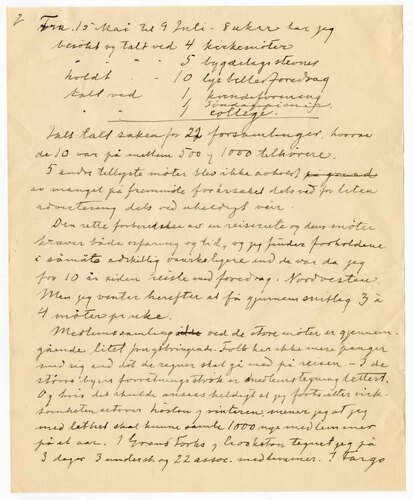 2
Fra 15 Mai til 9 Juli - 8 uker har jeg
besøkt og talt ved 4 kirkemøter
" " " 5 bygdelagsstevner
holdt " 10 lysbilledforedrag
talt ved 1 kvindeforening
" " 1 Søndagspicnic
1 college.
Ialt talt saken for 22 forsamlinger, hvorav
de 10 var på mellem 500 og 1000 tilhørere.
5 andre tillyste møter blev ikke avholdt på grund
av mangel på fremmøte forårsaket dels ved for liten
advertering dels ved uheldigt veir.
Den rette forberedelse av en reiserute og dens møter
kræver både erfaring og tid, og jeg finder forholdene
i såmåte adskillig vanskeligere end de var da jeg
for 10 år siden reiste med foredrag i Nordvesten.
Men jeg venter herefter at få gjennemsnitlig 3 à
4 møter pr uke.
Medlemssamling ved de store møter er gjennem-
gående litet frugtbringende. Folk har ikke mere penger
med sig end det de regner skal gå med på reisen. - I de
større byers forretningsstrøk er medlemstegning lettest.
Og hvis det skulde ansees heldigt at jeg fortsætter virk-
somheten utover høsten og vinteren, mener jeg at jeg
med lethet skal kunne samle 1000 nye medlemmer
på et aar. I Grand Forks og Crookston tegnet jeg på
3 dager 3 underst. og 22 assoc. medlemmer. I Fargo